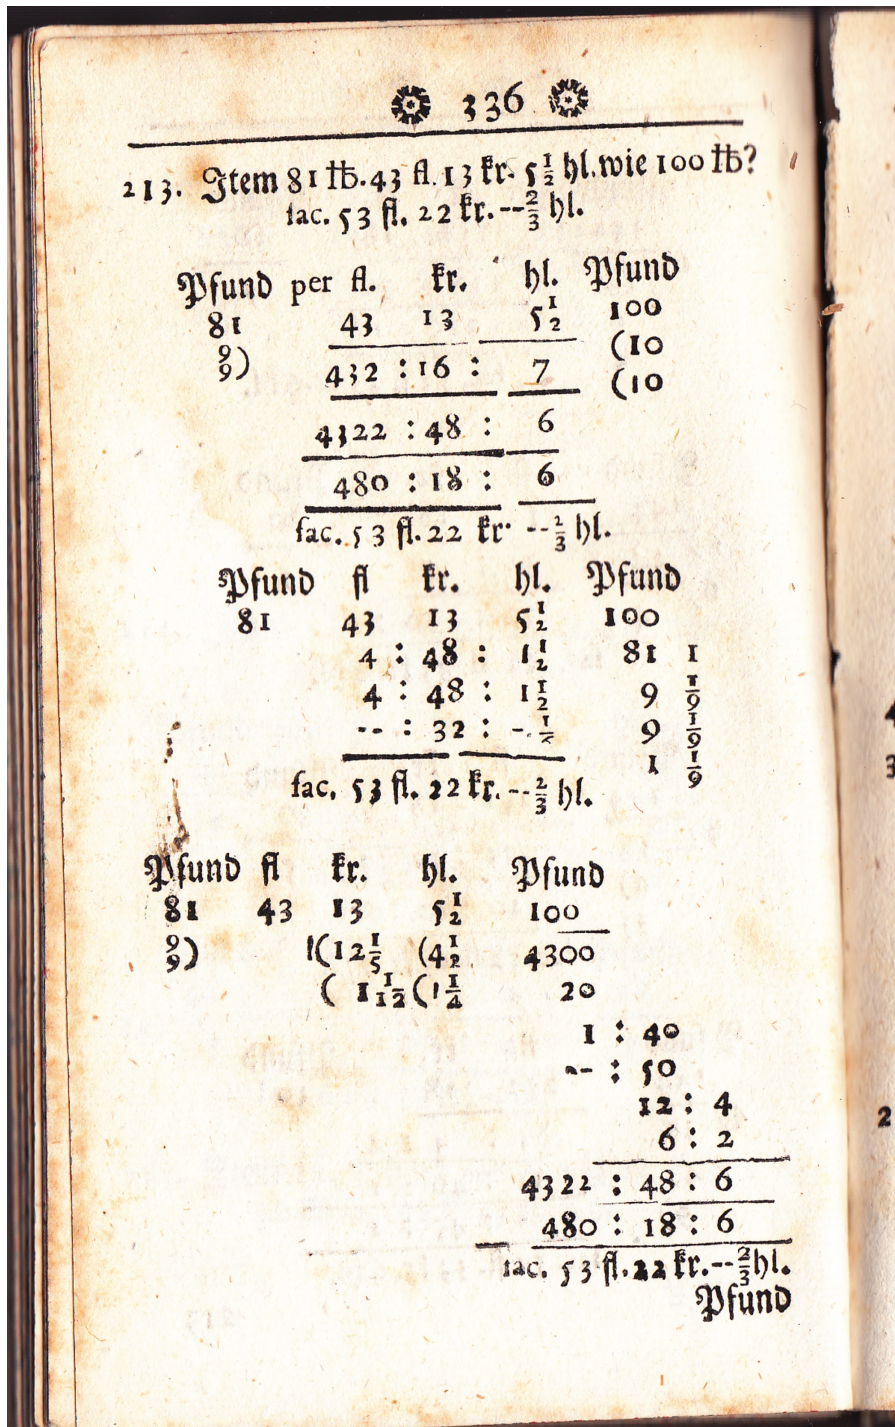 336
213. Item 81 ℔. 43 fl. 13 kr. 5 1/2 hl. wie 100 ℔?
fac. 53 fl. 22 kr. -- 2/3 hl.
Pfund per fl. kr. hl. Pfund
81 43 13 5 1/2 100
9) (10
9) 432 : 16 : 7 (10
4322 : 48 : 6
480 : 18 : 6
fac. 53 fl. 22 kr. -- 2/3 hl.
Pfund fl kr. hl. Pfund
81 43 13 5 1/2 100
4 : 48 : 1 1/2 81 1
4 : 48 : 1 1/2 9 1/9
-- : 32 : -- 9 1/9
1 1/9
fac. 53 fl. 22 kr. -- 2/3 hl.
Pfund fl kr. hl. Pfund
81 43 13 5 1/2 100
9) !(12 1/5 (4 1/2 4300
9) ( 1 1/12 (1 1/4 20
1 : 40
-- : 50
12 : 4
6 : 2
4322 : 48 : 6
480 : 18 : 6
fac. 53 fl. 22 kr. -- 2/3 hl.
Pfund